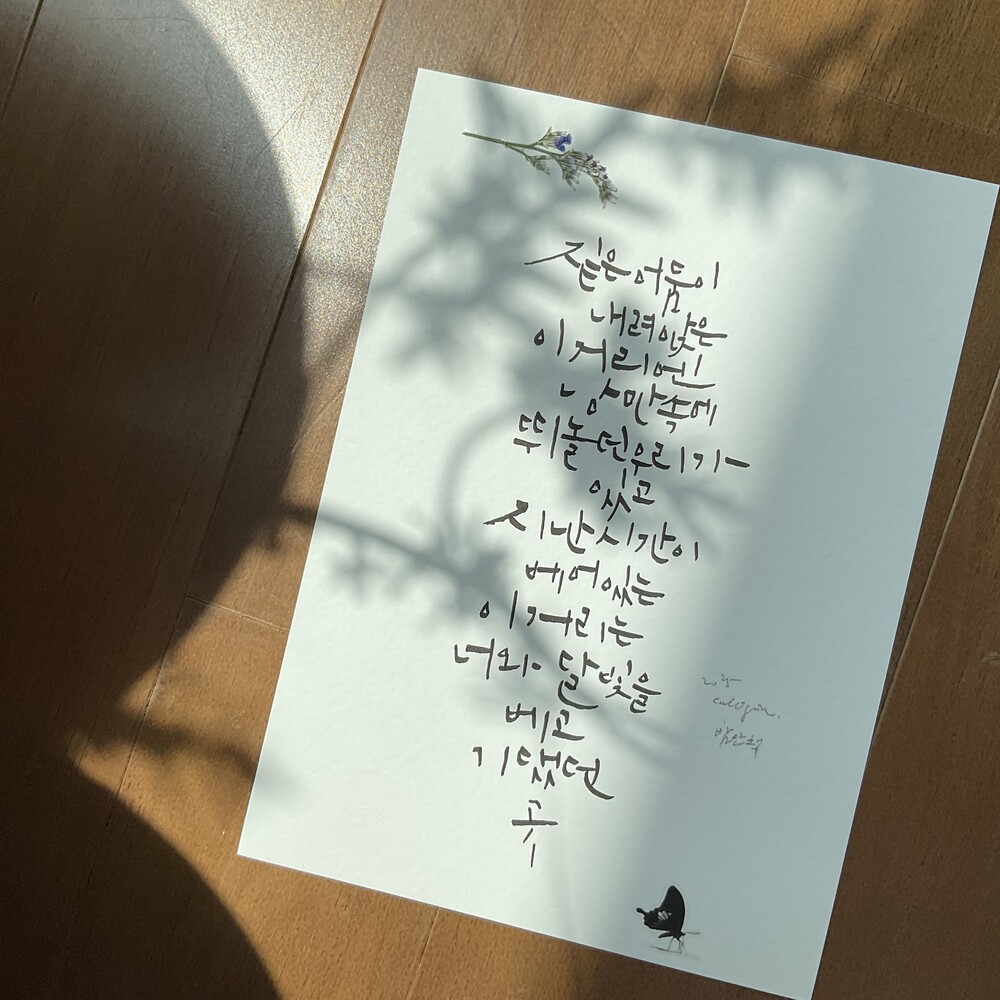 짙은 어둠이
내려앉은
이 거리엔
낭만 속에
뛰놀던 우리가
있고
지난 시간이
베어있는
이 거리는
너와 달빛을
베고
기댔던
곳